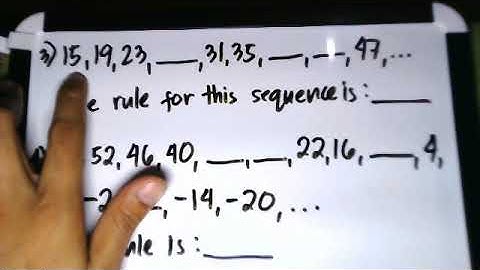 3) 15, 19, 23, ___, 31, 35, ___, ___, 47, ...
rule for this sequence is : ____
52, 46, 40, ___, ___, 22, 16, ___, 4,
-14, -20, ...
is : ____